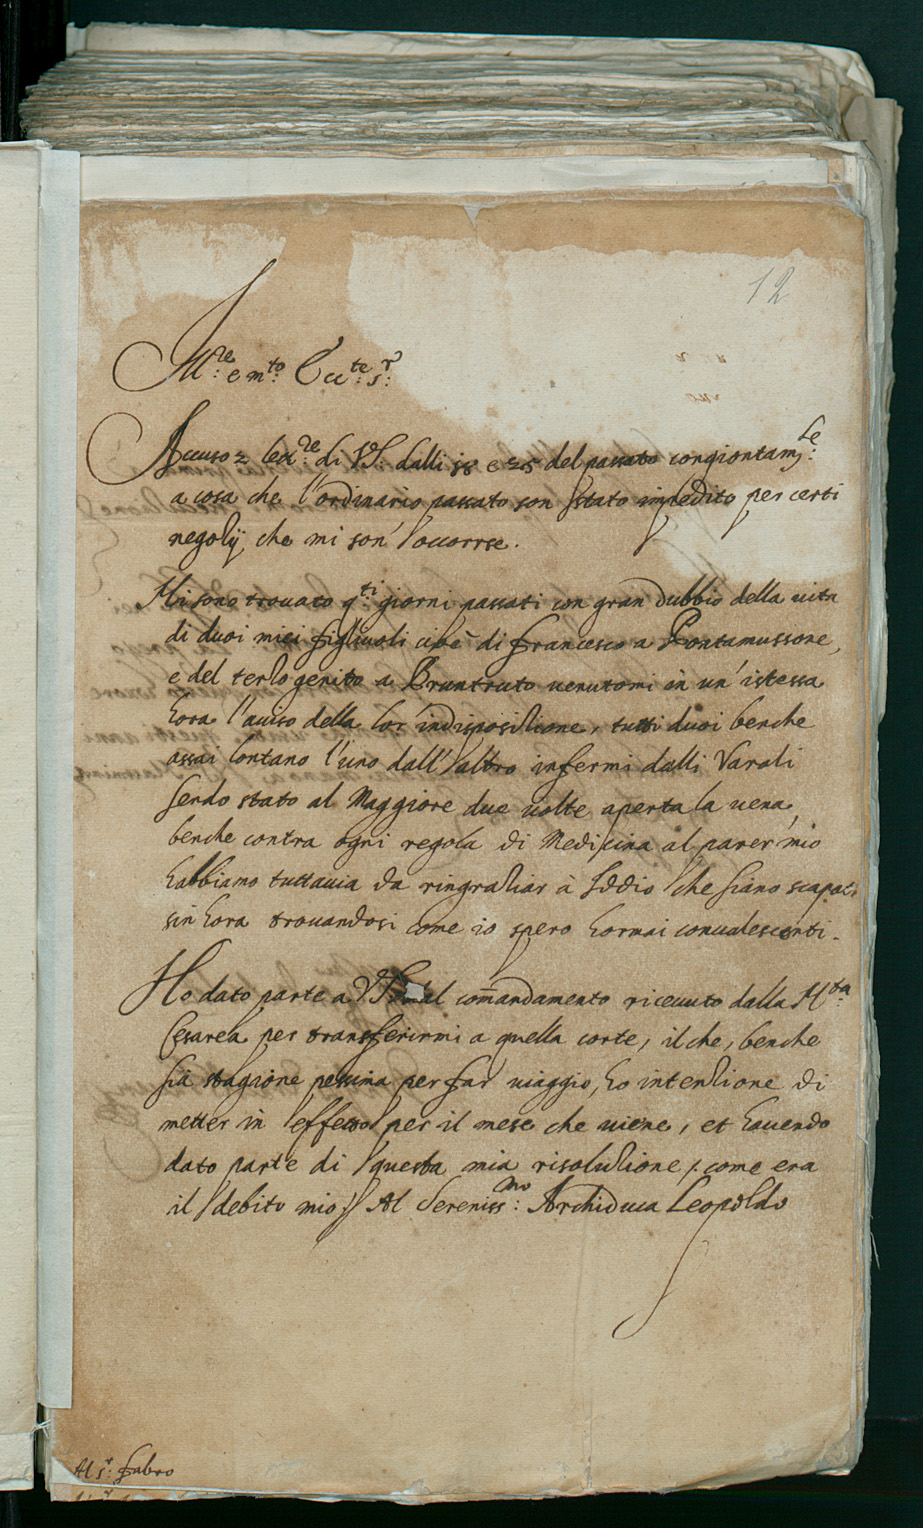 12
Mre: e mto: Eccte: Sr:
Accuso 2 lettre: di VS: dalli 18 e 25 del passato congiontamte:
a cosa che l'ordinario passato son stato impedito per certi
negotij che mi son' occorrse.
Mi sono trouato qti: giorni passati con gran dubbio della uita
di duoi miei figliuoli cioè di Francesco a Pontamussone,
e del terzo genito a Bruntruto uenutomi in un' istessa
hora l'auiso della lor' indispositione, tutti duoi benche
assai lontano l'uno dall'altro infermi dalli Varoli
sendo stato al Maggiore due uolte aperta la uena,
benche contra ogni regola di Medicina al parer mio
habbiamo tuttauia da ringratiar à Iddio che siano scapati
sin hora trouandosi come io spero hormai conualescenti.
Ho dato parte a VS: al com̄andamento riceuuto dalla Mta:
Cesarea per transferirmi a quella corte, il che, benche
sia stagione pessima per far uiaggio, ho intentione di
metter in effetto per il mese che uiene, et hauendo
dato parte di questa mia risolutione /: come era
il debito mio :/ Al Sereniss:mo Archiduca Leopoldo
Al Sr: Fabro